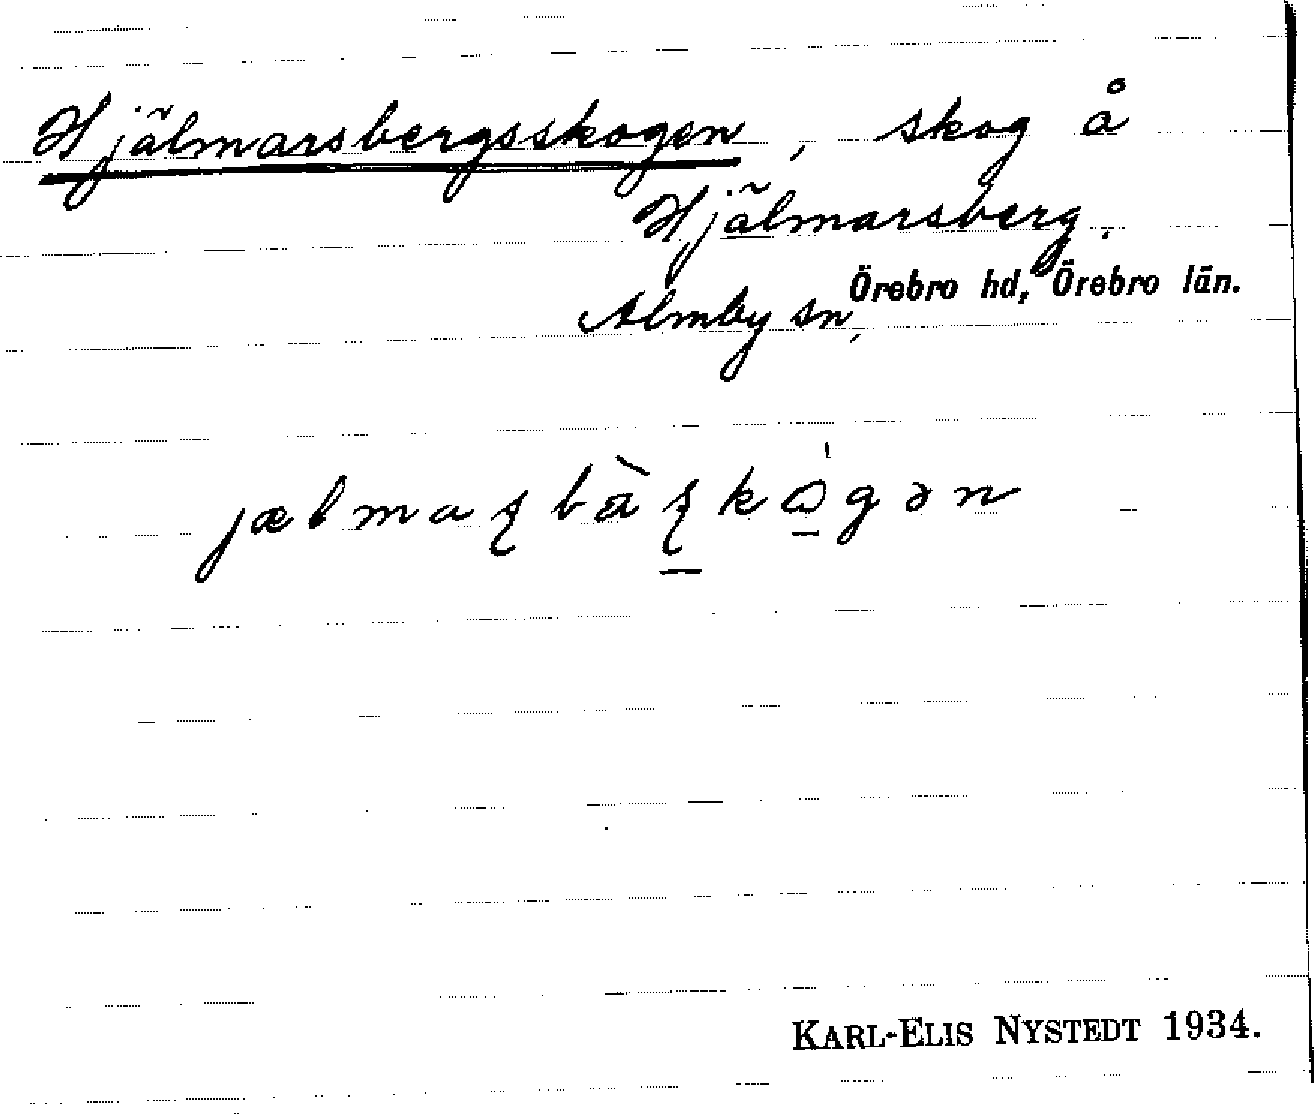 Hjälmarsbergsskogen, skog å
Hjälmarsberg.
Almby sn, Örebro hd, Örebro län.
jælmaʂbàʂkɷ̀gən
KARL-ELIS NYSTEDT 1934.